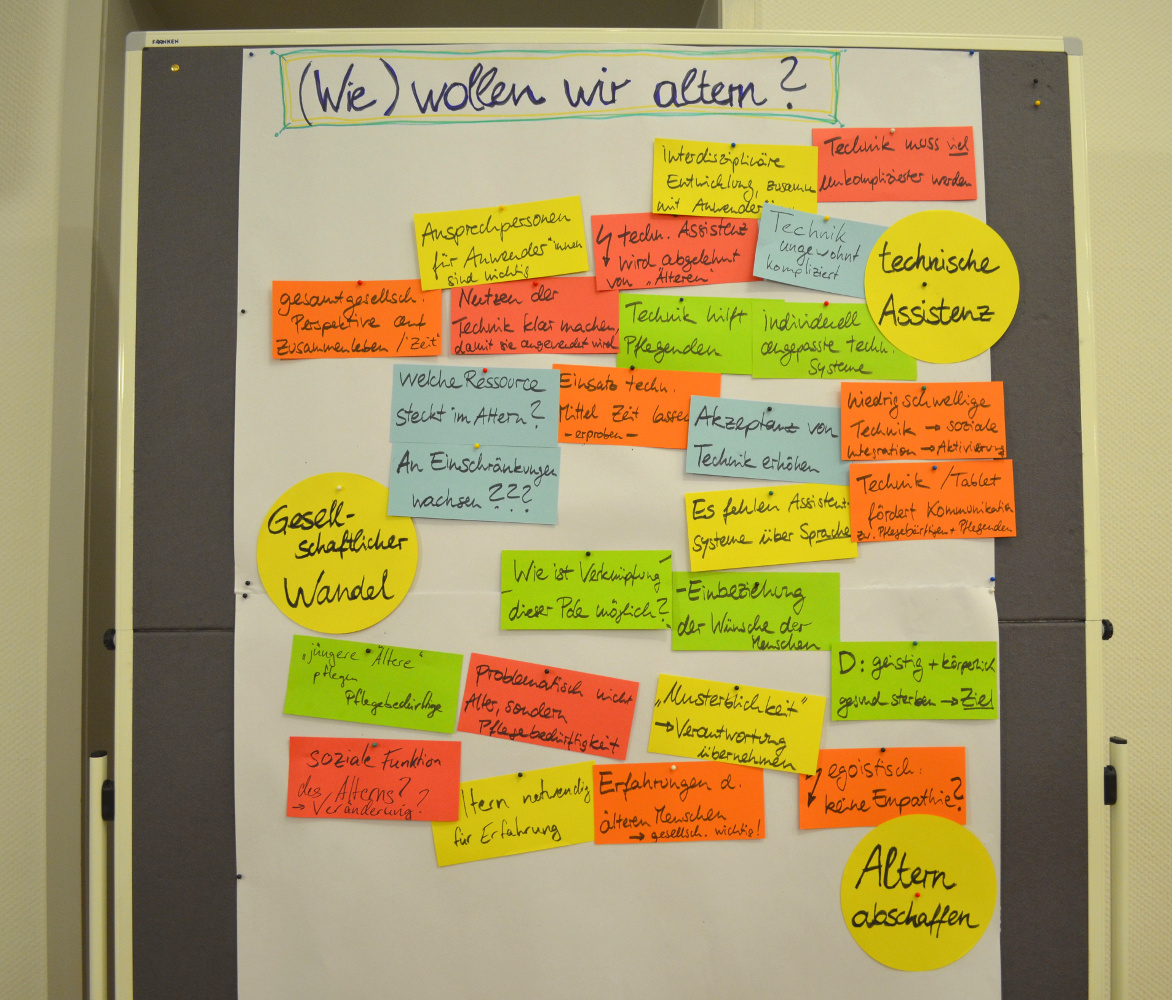 FRANKEN
(Wie) wollen wir altern?
Technik muss viel
unkomplizierter werden
Interdisziplinäre
Entwicklung, zusammen
mit Anwender
Ansprechpersonen
für Anwender*innen
sind wichtig
techn. Assistenz
wird abgelehnt
von "Älteren"
Technik
ungewohnt
kompliziert
technische
Assistenz
gesamtgesellsch.
Perspektive auf
Zusammenleben / "Zeit"
Nutzen der
Technik klar machen,
damit sie angewendet wird
Technik hilft
Pflegenden
individuell
angepasste techn.
Systeme
Welche Ressource
steckt im Altern?
Einsatz techn.
Mittel Zeit lassen
- erproben -
Akzeptanz von
Technik erhöhen
niedrigschwellige
Technik → soziale
Integration → Aktivierung
An Einschränkungen
wachsen ???
Es fehlen Assistenz-
systeme über Sprache
Technik / Tablet
fördert Kommunikation
zw. Pflegebürftigen + Pflegenden
Gesell-
schaftlicher
Wandel
Wie ist Verknüpfung
dieser Pole möglich?
- Einbeziehung
der Wünsche der
Menschen
"jüngere Ältere"
pflegen
Pflegebedürftige
Problematisch nicht
Alter, sondern
Pflegebedürftigkeit
"Musterblichkeit"
→ Verantwortung
übernehmen
D: geistig + körperlich
gesund sterben → Ziel
soziale Funktion
des Alterns?
→ Veränderung?
ltern notwendig
für Erfahrung
Erfahrungen d.
älteren Menschen
→ gesellsch. wichtig!
egoistisch:
keine Empathie?
Altern
abschaffen